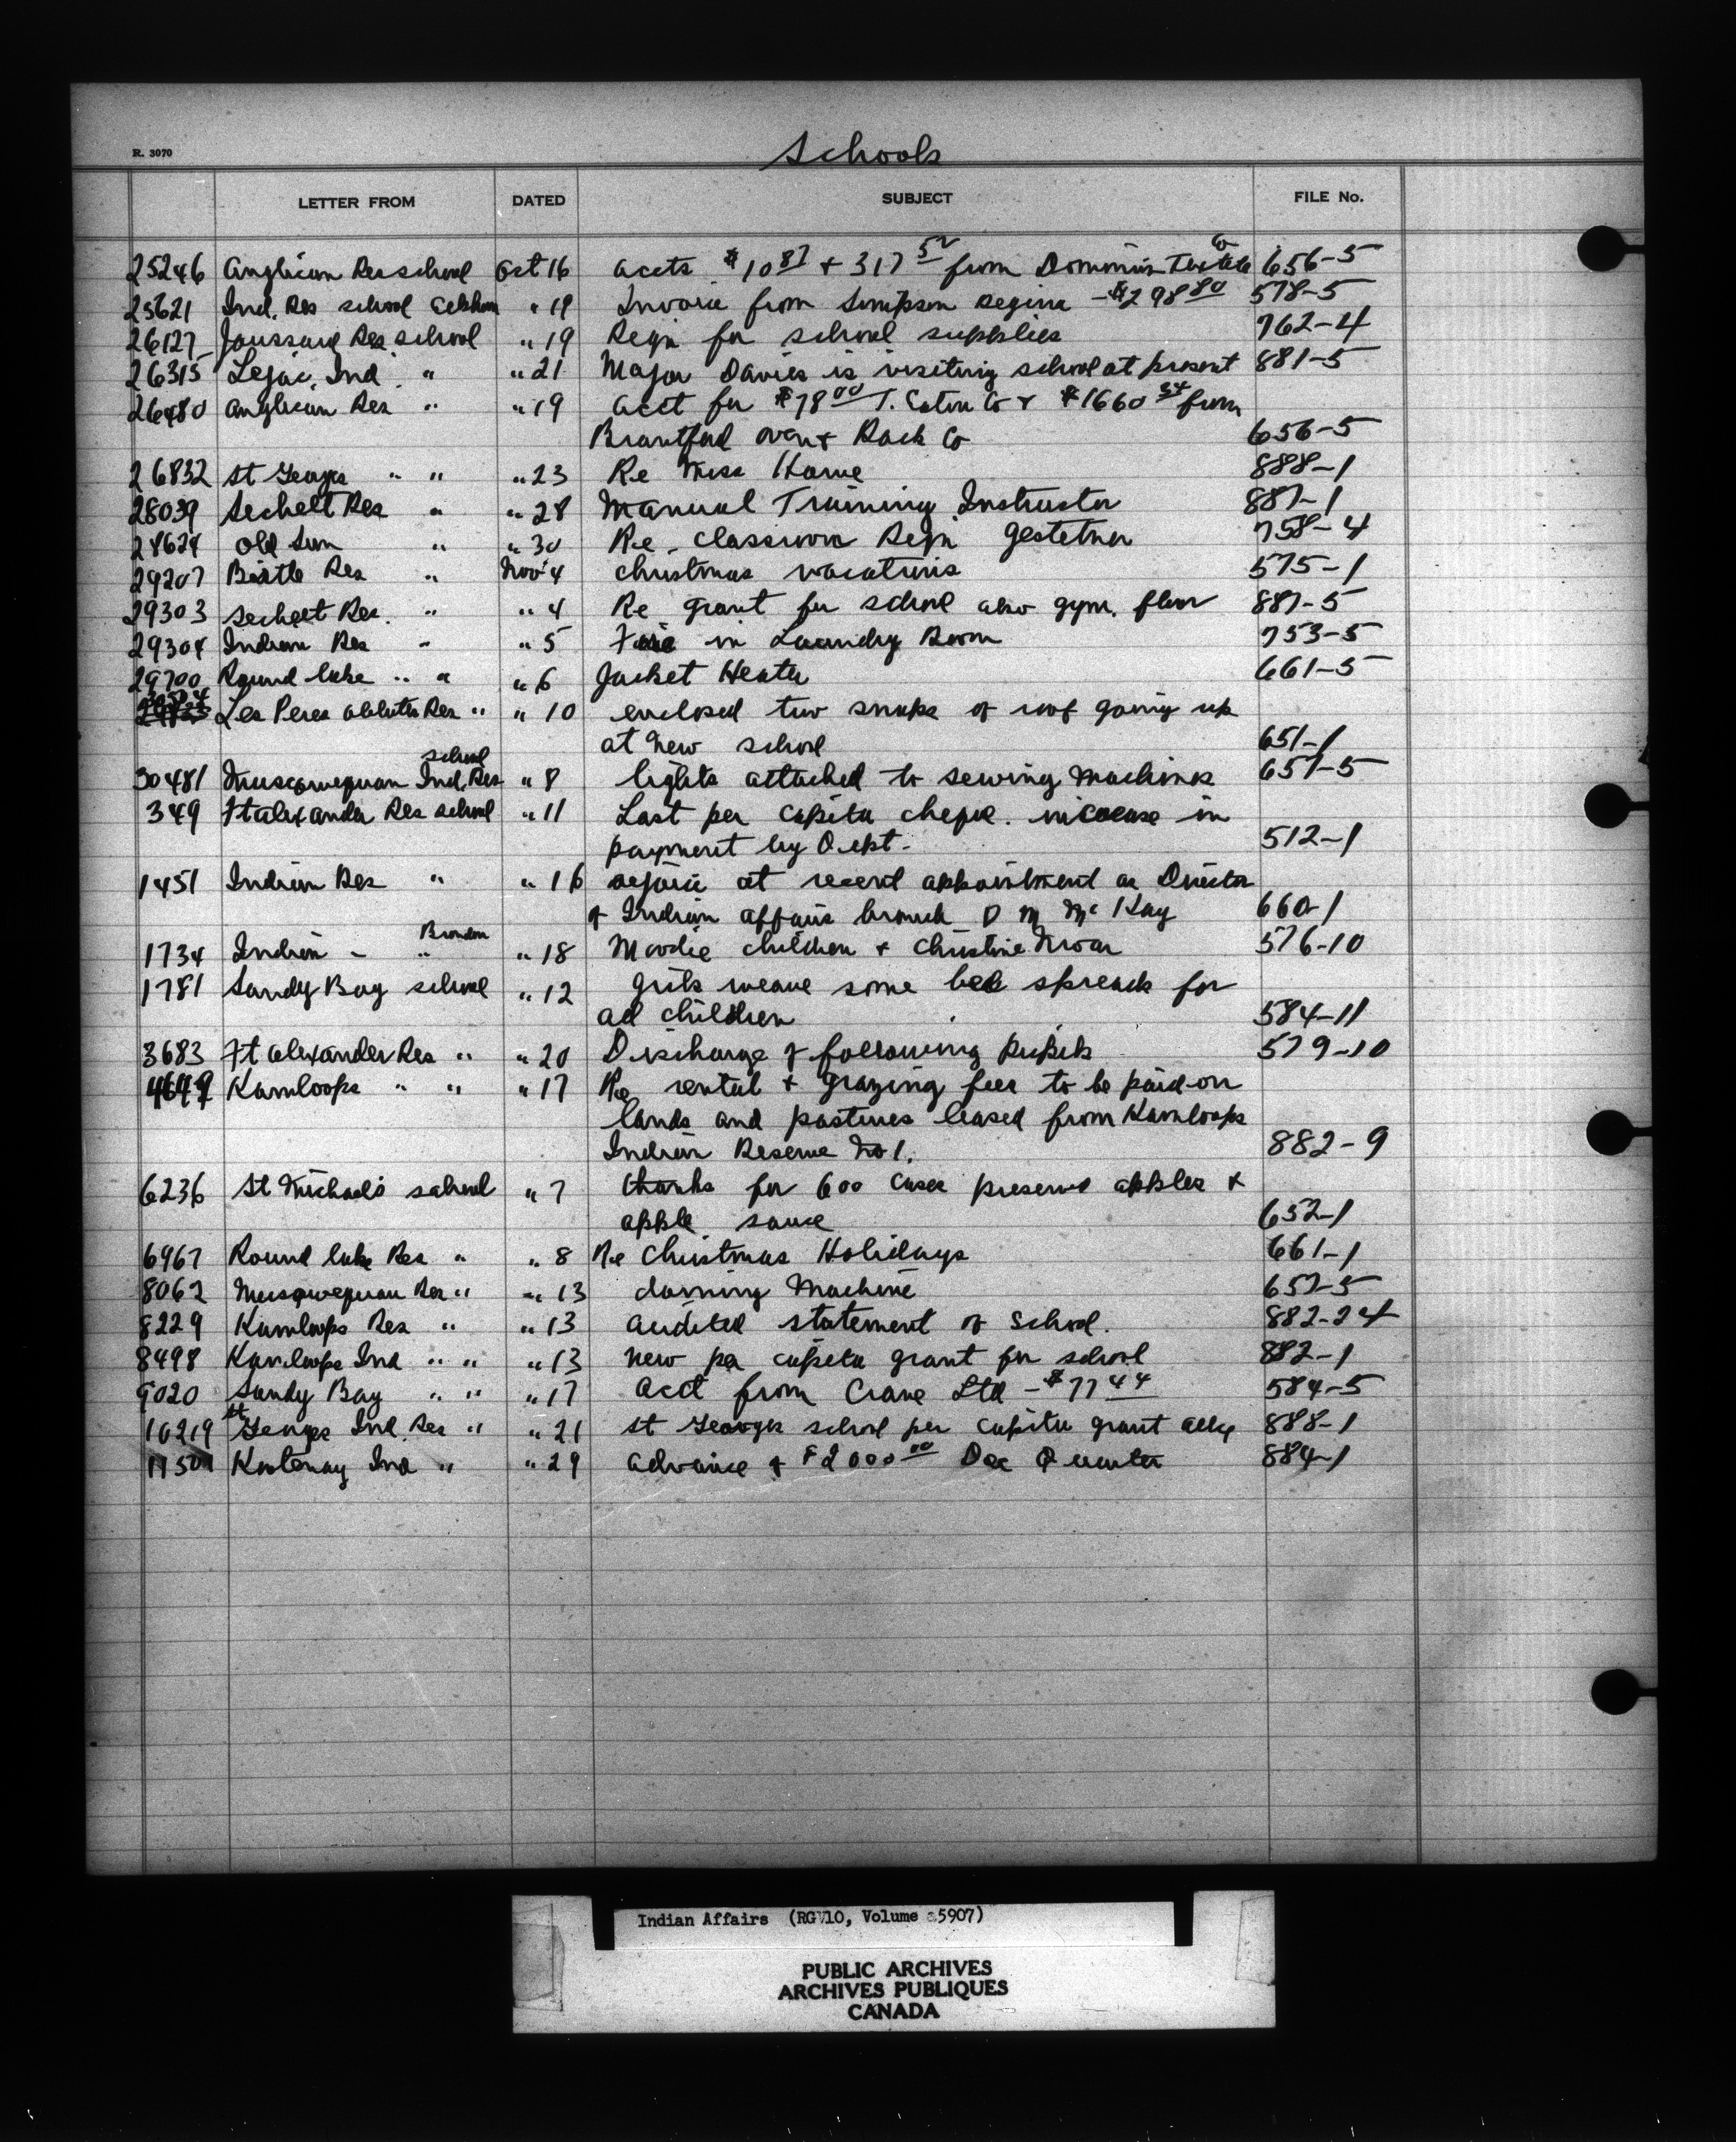 Schools
R. 3070
LETTER FROM DATED SUBJECT FILE No.
25246 Anglican Res school Oct 16 accts $10 87 + 317 52 from Dominion Textile Co 656-5
25621 Ind. Res school " 19 Invoice from Simpson Regina - $298 80 578-5
26127 Joussard Res. school " 19 Reqn for school supplies 762-4
26315 Lejac. Ind. " " 21 Major Davies is visiting school at present 881-5
26480 Anglican Res " " 19 acct for $78 00 T. Eaton Co + $1660 34 from
Brantford oven + Rack Co 656-5
26832 St Georges " " " 23 Re Miss 888-1
28039 Sechelt Res " " 28 Manual Training Instructor 887-1
28628 Old Sun " " 30 Re. classroom Reqn Gestetner 758-4
29207 Birtle Res " Nov 4 Christmas vacations 575-1
29303 Sechelt Res. " " 4 Re grant for school also gym. floor 887-5
29304 Indian Res " " 5 Fire in Laundry Room 753-5
29700 Round lake " " " 6 Jacket Heater 661-5
Les Peres oblats Res " " 10 enclosed two snaps of roof going up
at new school 651-1
30481 Muscowequan Ind. Res school " 8 lights attached to sewing machines 657-5
349 Ft Alexander Res school " 11 Last per capita cheque. increase in
payment by Dept. 512-1
1451 Indian Res " " 16 rejoice at recent appointment as Director
of Indian affairs branch D M McKay 660-1
1734 Indian " " Brandon " 18 Moodie children + Christine 576-10
1781 Sandy Bay school " 12 girls weave some bed spreads for
all children 584-11
3683 Ft Alexander Res " " 20 Discharge of following pupils 579-10
4647 Kamloops " " " 17 Re rental + grazing fees to be paid on
lands and pastures leased from Kamloops
Indian Reserve No 1. 882-9
6236 St Michaels school " 7 thanks for 600 cases preserved apples +
apple sauce 652-1
6967 Round lake Res " " 8 Re Christmas Holidays 661-1
8062 Muscowequan Res " " 13 darning Machine 657-5
8229 Kamloops Res " " 13 audited statement of School. 882-24
8498 Kamloops Ind " " " 13 new per capita grant for school 882-1
9020 Sandy Bay " " " 17 acct from Crane Ltd - $77 44 584-5
10219 St Georges Ind. Res " " 21 St Georges school per capita grant 888-1
Kootenay Ind " " 29 advance of $2000 00 Dec Quarter 884-1
Indian Affairs (RG 10, Volume 5907)
PUBLIC ARCHIVES
ARCHIVES PUBLIQUES
CANADA